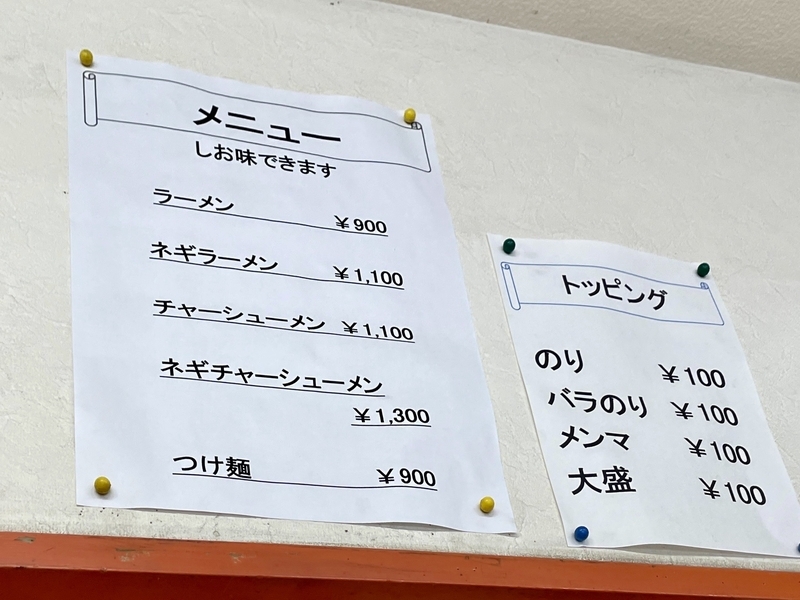 メニュー
しお味できます
ラーメン ￥900
ネギラーメン ￥1,100
チャーシューメン ￥1,100
ネギチャーシューメン
￥1,300
つけ麺 ￥900
トッピング
のり ￥100
バラのり ￥100
メンマ ￥100
大盛 ￥100